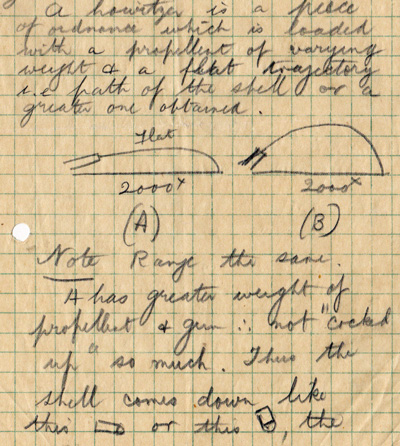 A howitzer is a piece
of ordnance which is loaded
with a propellent of varying
weight & a flat trajectory
i.e. path of the shell or a
greater one obtained.
Flat
2000ˣ
2000ˣ
(A)
(B)
Note Range the same.
A has greater weight of
propellent & gun ∴ not "cocked
up" so much. Thus the
shell comes down like
this or this, the